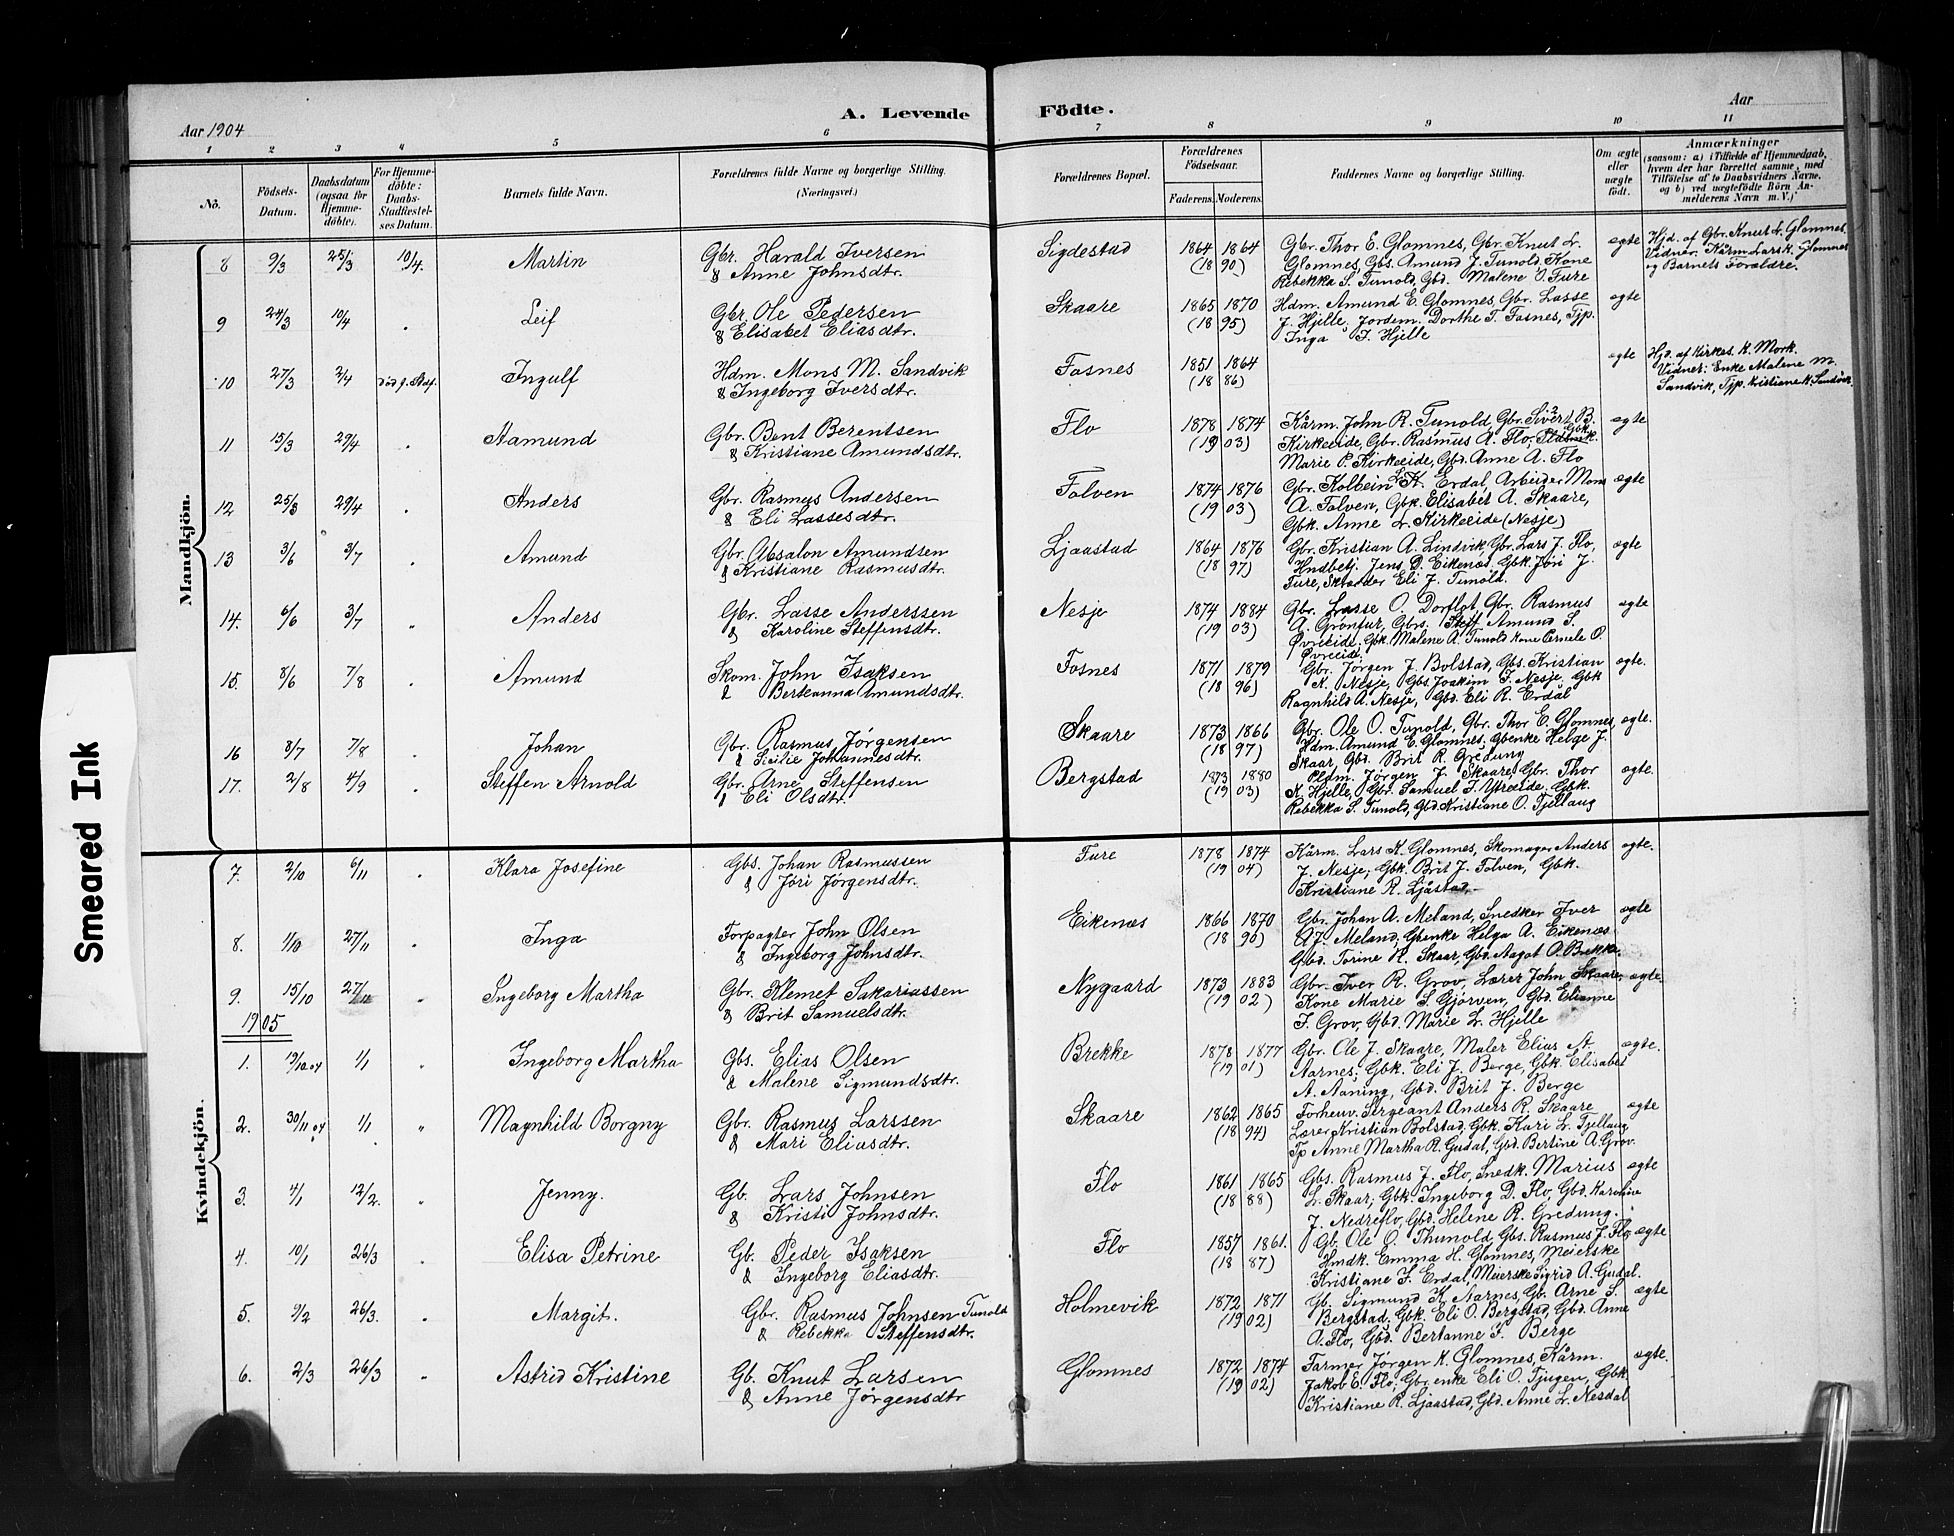 A. Levende Födte.
Aar 1904
Aar
1 2 3 4 5 6 7 8 9 10 11
No.
Födsels-Datum.
Daabsdatum (ogsaa for Hjemme-döbte).
For Hjemme-döbte: Daabs-Stadfæstel-ses Datum.
Barnets fulde Navn.
Forældrenes fulde Navne og borgerlige Stilling.
(Næringsvei.)
Forældrenes Bopæl.
Forældrenes Födselsaar.
Faderens. Moderens.
Faddernes Navne og borgerlige Stilling.
Om ægte eller uægte födt.
Anmærkninger
(saasom: a) i Tilfælde af Hjemmedaab,
hvem der har forrettet samme, med
Tilföielse af to Daabsvidners Navne,
og b) ved uægtefödte Börn An-
melderens Navn m. V.)
Mandkjön.
8 9/3 25/3 10/4. Martin Gbr. Harald Iversen Sigdestad 1864 1864 Gbr. Thor E. Glomnes, Gbr. Knut L. ægte Hjd. af Gbr. Knut L. Glomnes.
& Anne Johnsdtr. (18 90) Glomnes, Gbs. Amund J. Tunold, Kone Vidner: Kårm. Lars K. Glomnes
Rebekka S. Tunold, Gbd. Malene O. Fure og Barnets Forældre.
9 24/3 10/4 . Leif Gbr. Ole Pedersen Skaare 1865 1870 Hdm. Amund E. Glomnes, Gbr. Lasse ægte
& Elisabet Eliasdtr. (18 95) J. Hjelle, Jordem. Dorthe T. Fosnes, Tjp.
Inga J. Hjelle
10 27/3 2/4 Ingulf Hdm. Mons M. Sandvik Fosnes 1851 1864 ægte Hjd. af Kirkes. K. Mork.
& Ingeborg Iversdtr. (18 86) Vidner: Enke Malene M.
Sandvik, Tjp. Kristiane K. Sandvik
11 15/3 29/4 . Aamund Gbr. Bent Berentsen Flo 1878 1874 Kårm. John R. Tunold, Gbr. Sivert B. ægte
& Kristiane Amundsdtr. (19 03) Kirkeeide, Gbr. Rasmus A. Flo, Gbk.
Marie P. Kirkeeide, Gbd. Anne A. Flo
12 25/3 29/4 . Anders Gbr. Rasmus Andersen Folven 1874 1876 Gbr. Kolbein K. Erdal, Arbeider Mons ægte
& Eli Lassesdtr. (19 03) A. Folven, Gbk. Elisabet A. Skaare,
Gbk. Anne L. Kirkeeide (Nesje)
13 3/6 3/7 . Amund Gbr. Absalon Amundsen Ljaastad 1864 1876 Gbr. Kristian A. Lindvik, Gbr. Lars J. Flo, ægte
& Kristiane Rasmusdtr. (18 97) Hndbetj. Jens D. Eikenæs, Gbk. Jøri J.
Fure, Eli J. Tunold.
14. 6/6 3/7 " Anders Gbr. Lasse Anderssen Nesje 1874 1884 Gbr. Lasse O. Dorflot, Gbr. Rasmus ægte
& Karoline Steffensdtr. (19 03) A. Grönfur, Gbrs. Amund S.
Øvreeide, Gbk. Malene A. Tunold, Kone Pernele O.
Øvreeide.
15. 8/6 7/8 . Amund Skom. John Isaksen Fosnes 1871 1879 Gbr. Jørgen J. Bolstad, Gbs. Kristian ægte.
& Berteanna Amundsdtr. (18 96) K. Nesje, Gbs. Joakim J. Nesje, Gbk
Ragnhild A. Nesje, Gbd. Eli R. Erdal
16 8/7 7/8 . Johan Gbr. Rasmus Jørgensen Skaare 1873 1866 Gbr. Ole O. Tunold, Gbr. Thor E. Glomnes, ægte.
& Sicilie Johannesdtr. (18 97) Hdm. Amund E. Glomnes, Gbenke Helge J.
Skaar, Gbd. Brit R. Gredung
17. 2/8 4/9 . Steffen Arnold Gbr. Arne Steffensen Bergstad 1873 1880 Pldm. Jørgen J. Skaare, Gbr. Thor ægte.
& Eli Olsdtr. (19 03) K. Hjelle, Gbr. Samuel J. Ytreeide, Gbk.
Rebekka S. Tunold, Gbd. Kristiane O. Tjellaug
Kvindekjön.
7. 2/10 6/11 . Klara Josefine Gbs. Johan Rasmussen Fure 1878 1874 Kårm. Lars K. Glomnes, Skomager Anders ægte.
& Jöri Jörgensdtr. (19 04) J. Nesje; Gbk. Brit J. Folven, Gbk.
Kristiane R. Ljåstad.
8. 1/10 27/11 . Inga Forpagter John Olsen Eikenæs 1866 1870 Gbr. Johan A. Meland, Snedker Iver ægte
& Ingeborg Johnsdtr. (18 96) A.J. Meland; Gbenke Helga A. Eikenæs
Gbd. Torine K. Skaar, Gbd. Aagot O. Brekke
9. 15/10 27/11 " Ingeborg Martha Gbr. Klemet Sakariassen Nygaard 1873 1883 Gbr. Iver R. Grov, Lærer John Skaare, ægte
& Brit Samuelsdtr. (19 02) Kone Marie S. Gjørven, Gbd. Elianne
J. Grov, Gbd. Marie L. Hjelle
1905
1. 19/10.04 1/1 " Ingeborg Martha Gbs. Elias Olsen Brekke 1878 1877 Gbr. Ole J. Skaare, Maler Elias A. ægte.
& Malene Sigmundsdtr. (19 01) Aarnes; Gbk. Eli J. Berge, Gbk. Elisabet
A. Aaning, Gbd. Brit J. Berge
2. 30/11 04 1/1 " Magnhild Borgny Gbr. Rasmus Larssen Skaare 1862 1865 Forhenv. Sergeant Anders R. Skaare ægte
& Mari Eliasdtr. (18 94) Lærer Kristian Bolstad, Gbk. Kari L. Tjellaug
Tp Anne Martha R. Gudal, Gbd. Bertine A. Grov.
3. 4/1 12/2. " Jenny. Gb. Lars Johnsen Flo 1861 1865 Gbs. Rasmus J. Flo, Snedk. Marius ægte
& Kristi Johnsdtr. (18 88) L. Skaar; Gbk. Ingeborg D. Flo, Gbd. Karoline
J. Nedreflo, Gbd. Helene R. Gredung.
4. 10/1 26/3 . Elisa Petrine Gb. Peder Isaksen Flo 1857 1861. Gb. Ole O. Thunold, Gbs. Rasmus J. Flo, ægte
& Ingeborg Eliasdtr. (18 87) Hmdk. Emma H. Glomnes, Meierske
Kristiane J. Erdal, Meierske Sigrid A. Gudal.
5. 9/2 26/3. . Margit. Gbr. Rasmus Johnsen Tunold Holmevik 1872 1871 Gb. Sigmund K. Aarnes, Gb. Arne S. ægte
& Rebekka Steffensdtr. (19 02) Bergstad; Gbk. Eli O. Bergstad, Gbd. Anne
A. Flo, Gbd. Bertanne J. Berge
6. 2/3 26/3 " Astrid Kristine Gb. Knut Larsen Glomnes 1872 1874 Farmer Jørgen K. Glomnes, Kårm. ægte.
& Anne Jörgensdtr (19 02) Jakob E. Flo; Gbr. enke Eli O. Tjugen, Gbk.
Kristiane R. Ljaastad, Gbd. Anne L. Nesdal
Smeared Ink